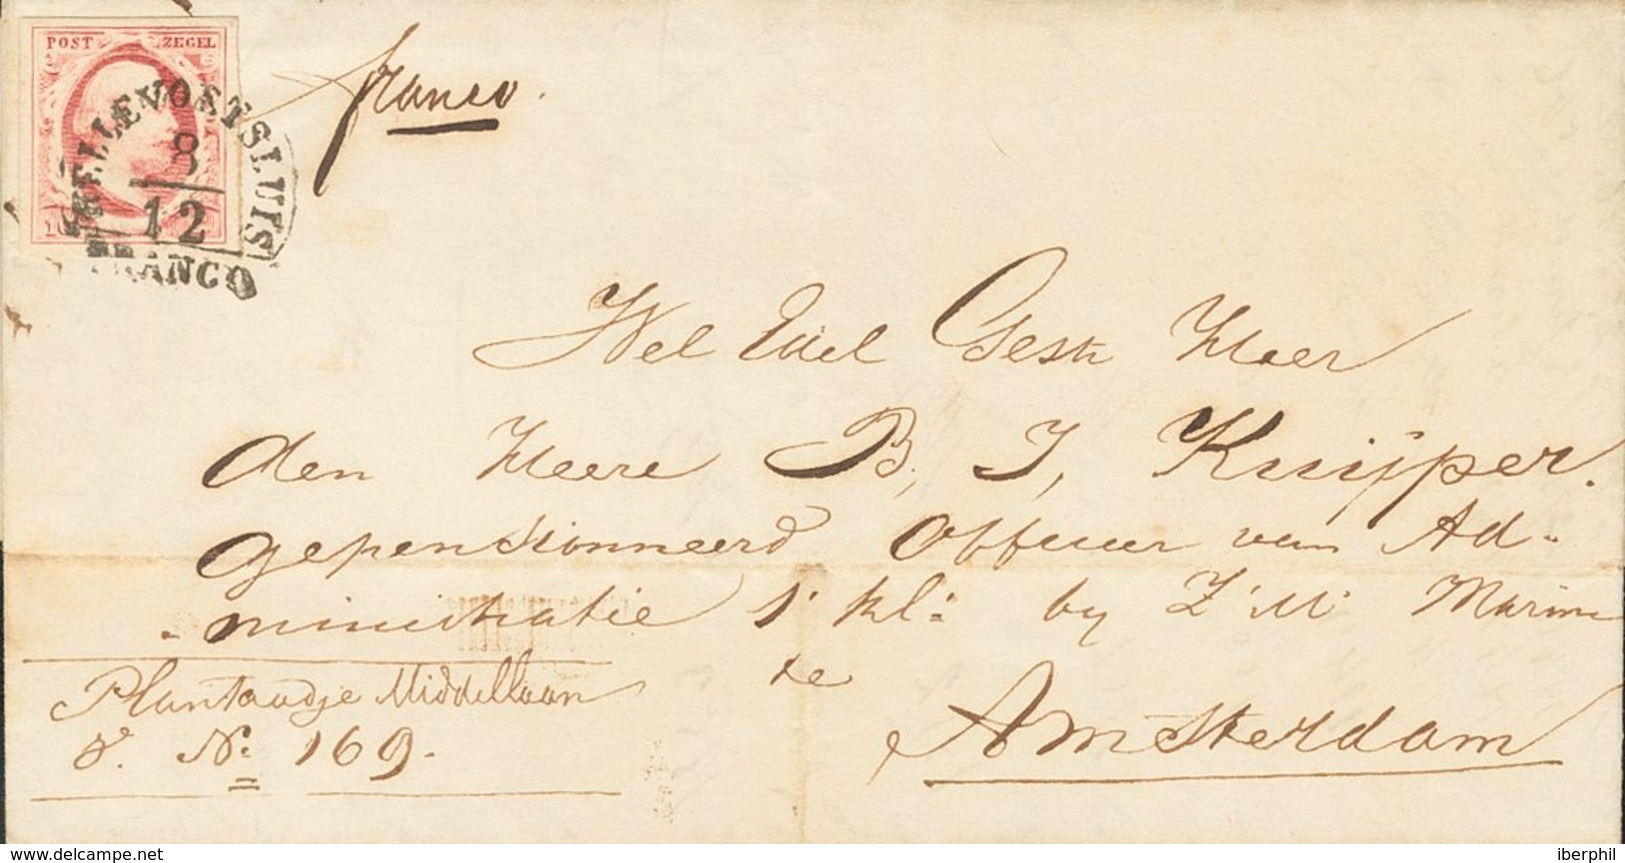 POST ZEGEL
HELLEVOETSLUIS
8
12
FRANCO
franco.
Wel Edel Gestr Heer
den Heere B, J, Kuijper.
gepensionneerd Officier van Ad-
-ministratie 1e kl: by Z M Marine
te
Plantaadje Middellaan
No 169.
Amsterdam
www.delcampe.net
iberphil